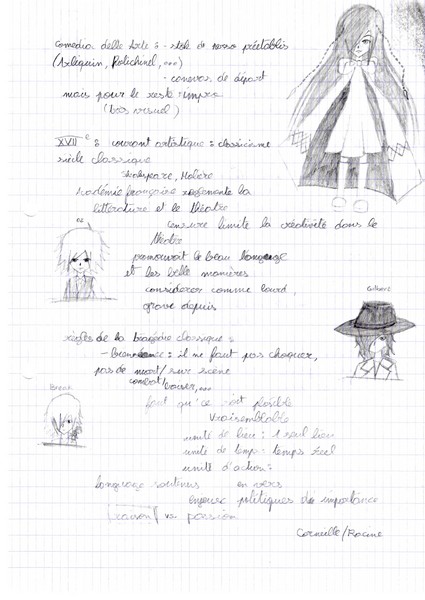 Comedia delle Arte : - stok de perso préétablis
(Arlequin, Polichinel, ...)
- canevas de départ
mais pour le reste : impro
(très visuel)
XVII e : courant artistique : classicisme
siècle classique
Shakespeare, Moliere
Académie française réglemente la
littérature et le théâtre
censure limite la créativité dans le
théâtre
promouvait le beau language
et les belle manières
considérer comme lourd,
grave depuis
règles de la tragédie classique :
- Bienséance : il ne faut pas choquer,
pas de mort / sur scène
combat / baiser, ...
faut qu'ce soit plosible
Vraisemblable
unité de lieu : 1 seul lieu
unité de temp : temps réel
unité d'action :
language soutenus en vers
enjeux politiques de importance
raison vs. passion
Corneille / Racine
Oz
Gilbert
Break